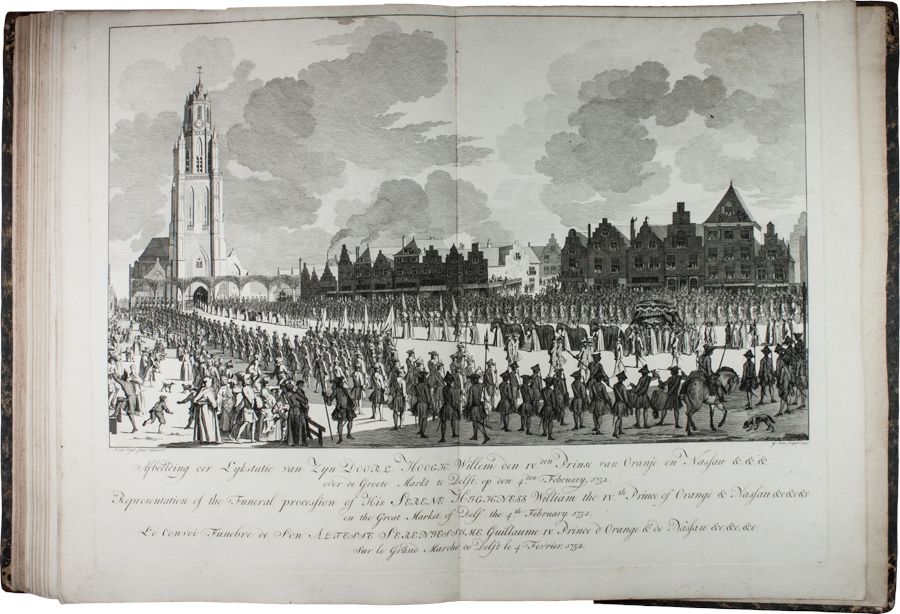 Afbeelding der Lykstatie van Zyn DOORL. HOOGH. Willem den IV.den Prinse van Oranje en Nassau &.&.&.
over de Groote Markt te Delft op den 4.den February, 1752.
Representation of the Funeral procession of His SERENE HIGHNESS William the IV.th Prince of Orange & Nassau &c&c&c
on the Great Market of Delf the 4.th February 1752.
Le Convoi Funebre de Son ALTESSE SERENISSIME Guillaume IV Prince d'Orange & de Nassau &c.&c.&c.
Sur le Grand Marche de Delft le 4.e Fevrier 1752.